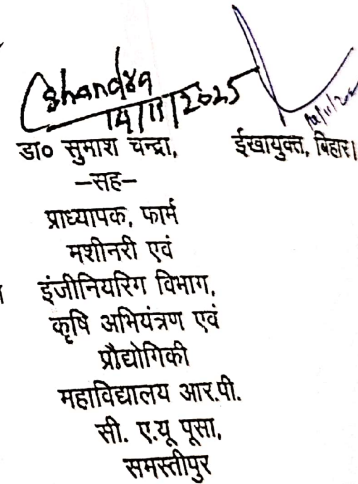 Chandra
14/11/2025
डा० सुमाश चन्द्रा,
–सह–
प्राध्यापक, फार्म
मशीनरी एवं
इंजीनियरिंग विभाग,
कृषि अभियंत्रण एवं
प्रौद्योगिकी
महाविद्यालय आर.पी.
सी. ए.यू पूसा,
समस्तीपुर
ईखायुक्त, बिहार।